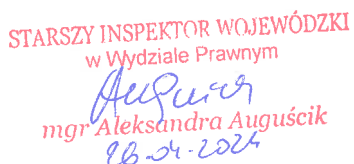 STARSZY INSPEKTOR WOJEWÓDZKI
w Wydziale Prawnym
mgr Aleksandra Auguścik
26-04-2024